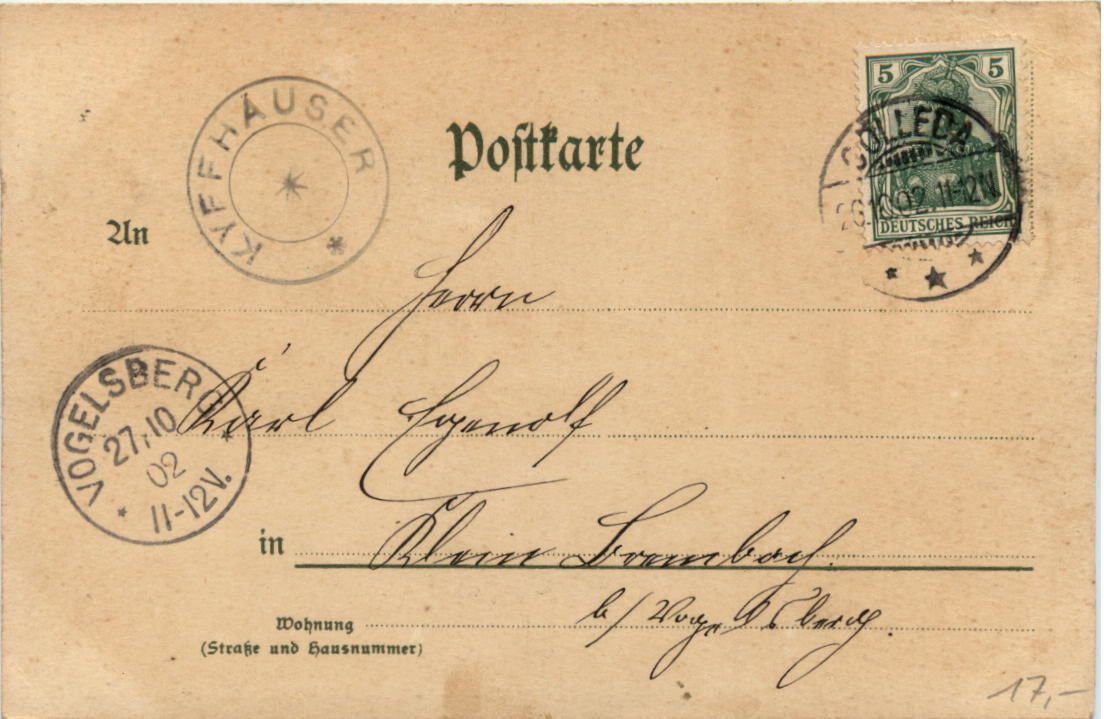 KYFFHÄUSER
Postkarte
5 5
DEUTSCHES REICH
CÖLLEDA
26.10.02. 11-12N.
An
Herrn
VOGELSBERG
27.10
02
11-12V.
Karl Egenolf
in Klein Brembach.
b/Vogelsberg.
Wohnung
(Straße und Hausnummer)
17,-